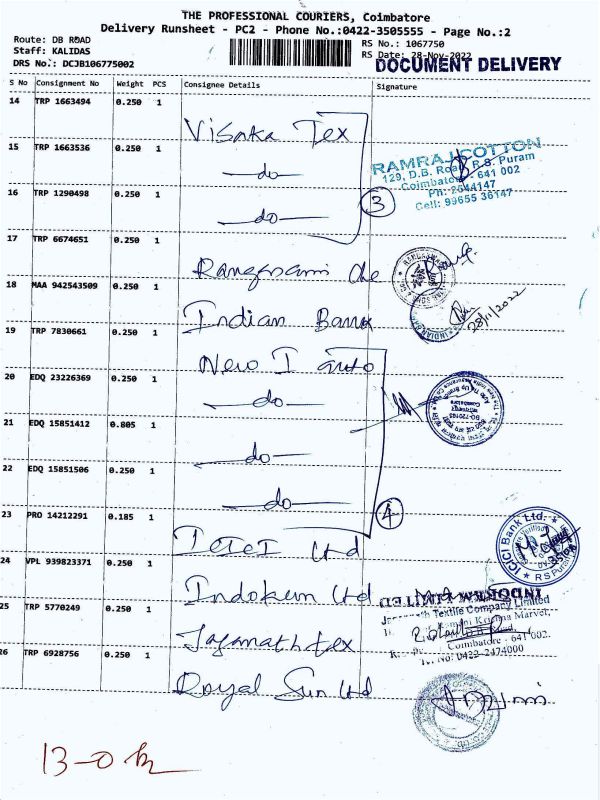 THE PROFESSIONAL COURIERS, Coimbatore
Delivery Runsheet - PC2 - Phone No.:0422-3505555 - Page No.:2
Route: DB ROAD
RS No.: 1067750
Staff: KALIDAS
RS Date: 28-Nov-2022
DRS No.: DCJB106775002
DOCUMENT DELIVERY
S No Consignment No Weight PCS Consignee Details Signature
14 TRP 1663494 0.250 1 Visaka Tex
15 TRP 1663536 0.250 1 —do—
RAMRAJ COTTON
129, D.B. Road, R.S. Puram
Coimbatore - 641 002
Ph: 2544147
Cell: 99655 36147
16 TRP 1290498 0.250 1 —do—
3
17 TRP 6674651 0.250 1
18 MAA 942543509 0.250 1 Indian Bank
28/11/2022
19 TRP 7830661 0.250 1 New I auto
20 EDQ 23226369 0.250 1 —do—
21 EDQ 15851412 0.805 1 —do—
22 EDQ 15851506 0.250 1 —do—
4
23 PRO 14212291 0.185 1 ICICI Ltd
ICICI Bank Ltd.
RS Puram
24 VPL 939823371 0.250 1 Indokem Ltd
INDOKEM LIMITED
25 TRP 5770249 0.250 1 Jaganath tex
Textile Company Limited
Krishna Marvel,
D.B. Road
Coimbatore - 641 002.
Tel No: 0422-2474000
26 TRP 6928756 0.250 1 Royal Sun Ltd